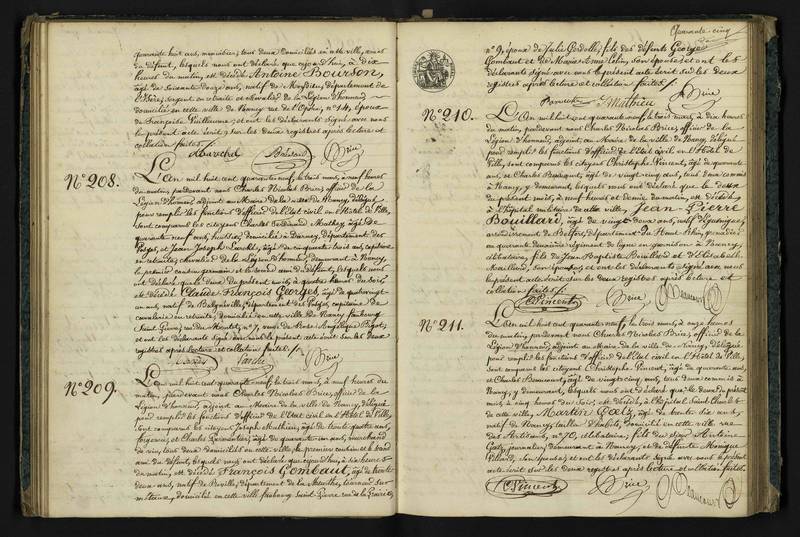 quarante huit ans, menuisier; tous deux domiciliés en cette ville, amis
du défunt, lesquels nous ont déclaré que cejourd'hui, à dix
heures du matin, est décédé Antoine Bourson,
âgé de soixante douze ans, natif de département de
l'Isère, sergent en retraite et chevalier de la Légion d'honneur,
domicilié en cette ville de Nancy rue de l'Opéra, n° 14, époux
de Françoise Guillaume; et ont les déclarants signé avec nous
le présent acte écrit sur les deux registres après lecture et
collation faites.
Brice
N° 208.
L'An mil huit cent quarante neuf, le trois mars, à neuf heures
du matin, pardevant nous Charles Nicolas Brice, officier de la
Légion d'honneur, adjoint au Maire de la ville de Nancy, délégué
pour remplir les fonctions d'officier de l'Etat civil en l'Hôtel de Ville,
sont comparus les citoyens Charles Ferdinand Mathey, âgé de
quarante neuf ans, domicilié à Darney, département des
Vosges, et Jean Joseph âgé de cinquante trois ans, capitaine
en retraite, chevalier de la Légion d'honneur, demeurant à Nancy,
le premier cousin germain et le second ami du défunt, lesquels nous
ont déclaré que le deux du présent mois, à quatre heures du soir,
est décédé Claude François Georges, âgé de
ans, natif de département des Vosges, capitaine de
cavalerie en retraite, domicilié en cette ville de Nancy faubourg
Saint Pierre, rue du Montet, n° 7, veuf de Rose Angélique Bigot;
et ont les déclarants signé avec nous le présent acte écrit sur les deux
registres après lecture et collation faites.
Brice
N° 209.
L'An mil huit cent quarante neuf, le trois mars, à neuf heures du
matin, pardevant nous Charles Nicolas Brice, officier de la
Légion d'honneur, adjoint au Maire de la ville de Nancy, délégué
pour remplir les fonctions d'officier de l'Etat civil en l'Hôtel de Ville,
sont comparus les citoyens Joseph Mathieu, âgé de trente quatre ans,
et Charles âgé de quarante un ans, marchand
de vin; tous deux domiciliés en cette ville, le premier cousin et le second
ami du défunt, lesquels nous ont déclaré que cejourd'hui, à six heures
du matin, est décédé François Gombaut, âgé de trente
deux ans, natif de département de la Meurthe, tourneur sur
métaux, domicilié en cette ville faubourg Saint Pierre rue de la Prairie,
Quarante cinq
n° 9, époux de Julie fils des défunts George
Gombaut et de Marie Anne son épouse; et ont les
déclarants signé avec nous le présent acte écrit sur les deux
registres après lecture et collation faites.
Mathieu Brice
N° 210.
L'An mil huit cent quarante neuf, le trois mars, à dix heures
du matin, pardevant nous Charles Nicolas Brice, officier de la
Légion d'honneur, adjoint au Maire de la ville de Nancy, délégué
pour remplir les fonctions d'officier de l'Etat civil en l'Hôtel de
Ville, sont comparus les citoyens Christophe Pincent, âgé de quarante
ans, et Charles Beaucourt, âgé de vingt cinq ans, tous deux commis
à Nancy, y demeurant, lesquels nous ont déclaré que le deux
du présent mois, à neuf heures et demie du matin, est décédé
à l'hôpital militaire de cette ville, Jean Pierre
Bouillard, âgé de vingt deux ans, natif
arrondissement de Belfort, département du Haut Rhin, grenadier
au quarante deuxième régiment de ligne en garnison à Nancy,
célibataire, fils de Jean Baptiste Bouillard et d'Elisabeth
son épouse; et ont les déclarants signé avec nous
le présent acte écrit sur les deux registres après lecture et
collation faites.
C. Pincent Brice Beaucourt
N° 211.
L'An mil huit cent quarante neuf, le trois mars, à onze heures
du matin, pardevant nous Charles Nicolas Brice, officier de la
Légion d'honneur, adjoint au Maire de la ville de Nancy, délégué
pour remplir les fonctions d'officier de l'Etat civil en l'Hôtel de Ville,
sont comparus les citoyens Christophe Pincent, âgé de quarante ans,
et Charles Beaucourt, âgé de vingt cinq ans, tous deux commis à
Nancy, y demeurant, lesquels nous ont déclaré que le deux du présent
mois, à cinq heures du soir, est décédé, à l'hôpital Saint Charles
de cette ville, Martin Goetz, âgé de trente six ans,
natif de Nancy, tailleur d'habits, domicilié en cette ville rue
des Artisans, n° 70, célibataire, fils du sieur Antoine
Goetz, journalier, demeurant à Nancy, et de défunte Monique
son épouse; et ont les déclarants signé avec nous le présent
acte écrit sur les deux registres après lecture et collation faites.
C. Pincent Brice Beaucourt